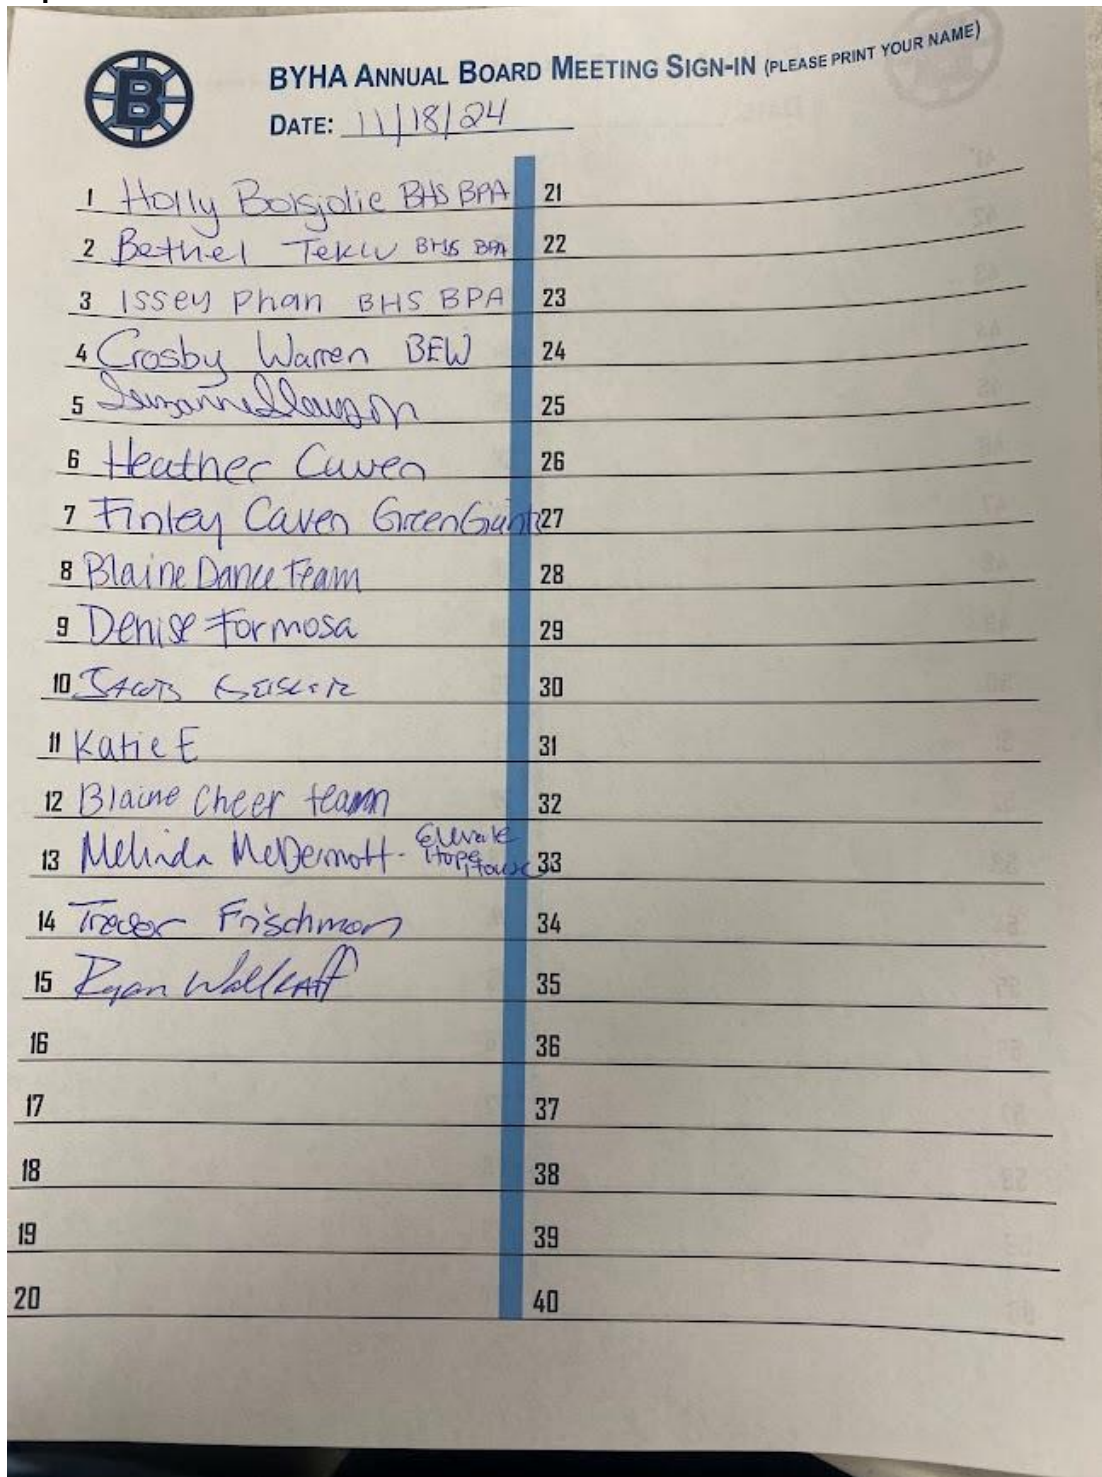 B
BYHA ANNUAL BOARD MEETING SIGN-IN (PLEASE PRINT YOUR NAME)
DATE: 11/18/24
1 Holly Boisjolie BHS BPA
2 Bethel Teklu BHS BPA
3 Issey Phan BHS BPA
4 Crosby Warren BEW
5 Suzanne
6 Heather Caven
7 Finley Caven Green Giants
8 Blaine Dance Team
9 Denise Formosa
10 Jacob
11 Katie E
12 Blaine Cheer team
13 Melinda McDermott - Elevate Hope House
14 Trevor Frischmon
15 Ryan Wallraff
16
17
18
19
20
21
22
23
24
25
26
27
28
29
30
31
32
33
34
35
36
37
38
39
40